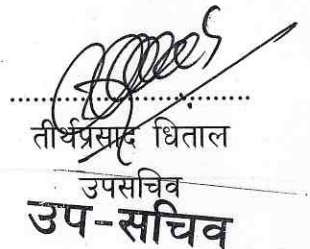 तीर्थप्रसाद धिताल
उपसचिव
उप-सचिव